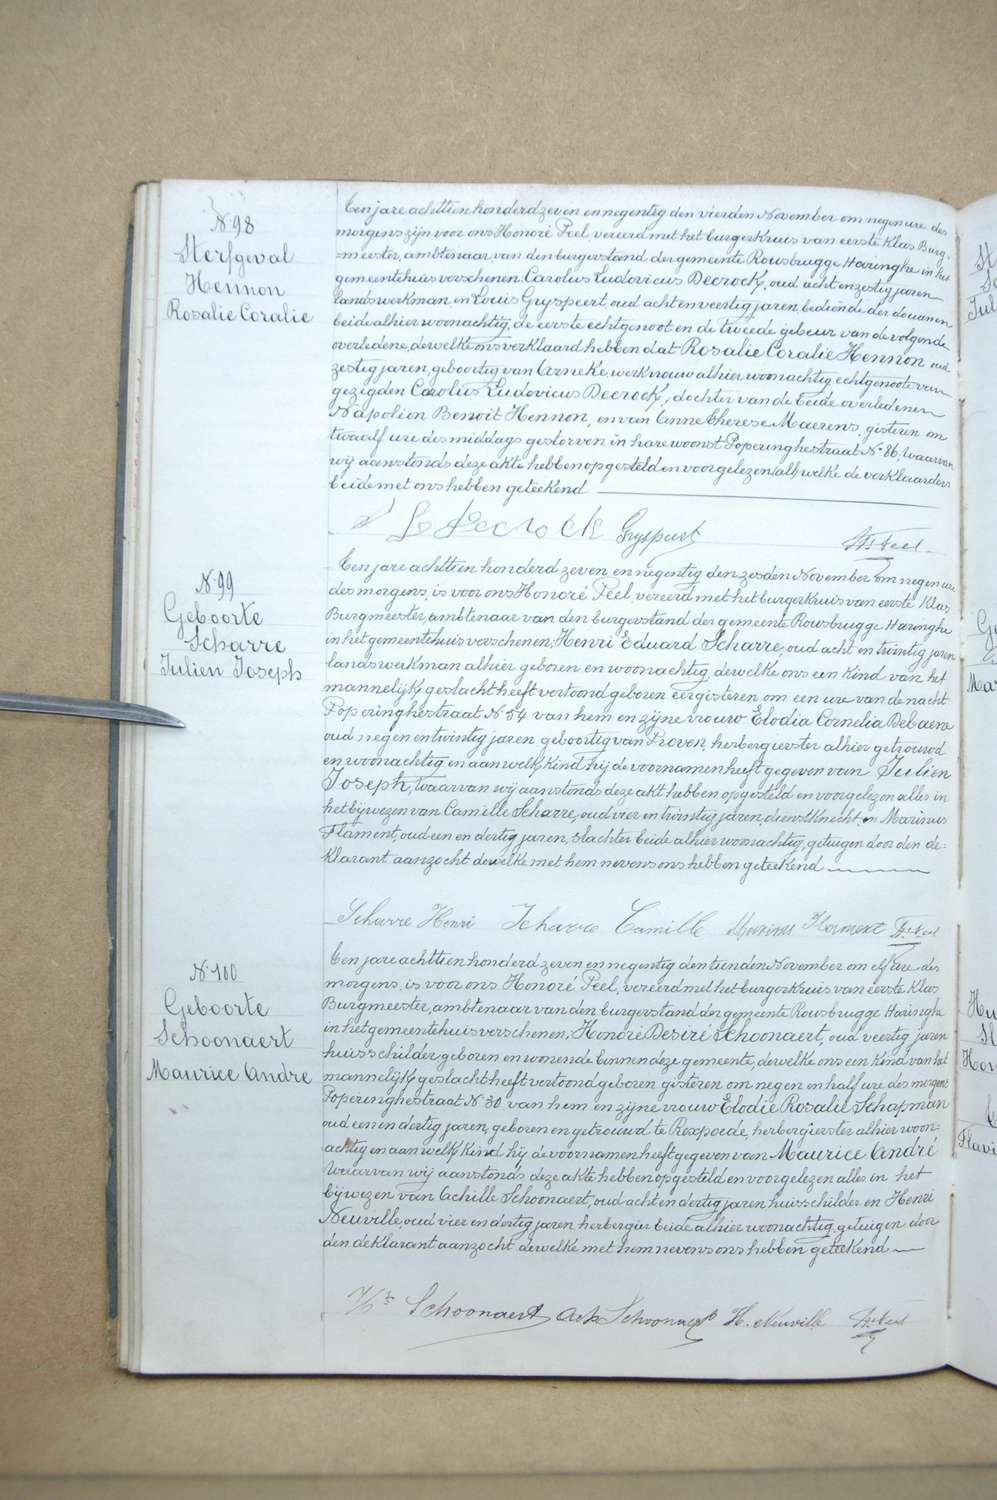 N. 98
Sterfgeval
Hennon
Rosalie Coralie
Een jare achttien honderd zeven en negentig den vierden November om negen ure des
morgens zijn voor ons Honoré Peel, vereerd met het burgerkruis van eerste klas Burg-
=meester, ambtenaar van den burgerstand der gemeente Rousbrugge Haringhe in het
gemeentehuis verschenen Carolus Ludovicus Decrock, oud acht en zestig jaren
landswerkman en Louis Gryspeert oud acht en veertig jaren bediende der douanen
beide alhier woonachtig, de eerste echtgenoot en de tweede gebuur van de volgende
overledene, dewelke ons verklaard hebben dat Rosalie Coralie Hennon oud
zestig jaren, geboortig van Arneke, werkvrouw alhier woonachtig echtgenoote van
gezigden Carolus Ludovicus Decrock, dochter van de beide overledenen
Napolion Benoit Hennon, en van Anne Therese Maerens, gisteren om
twaalf ure des middags gestorven in hare woonst Poperinghestraat N. 86, waarvan
wij aanstonds deze akte hebben opgesteld en voorgelezen, welke de verklaarders
beide met ons hebben geteekend
Decrock Gryspeert H. Peel
N. 99
Geboorte
Scharre
Julien Joseph
Een jare achttien honderd zeven en negentig den zesden November om negen ure
des morgens, is voor ons Honoré Peel, vereerd met het burgerkruis van eerste klas
Burgmeester, ambtenaar van den burgerstand der gemeente Rousbrugge Haringhe
in het gemeentehuis verschenen, Henri Eduard Scharre, oud acht en twintig jaren
landswerkman alhier geboren en woonachtig, dewelke ons een kind van het
mannelijk geslacht heeft vertoond geboren eergisteren om een ure van de nacht
Poperinghestraat N. 54 van hem en zijne vrouw Elodia Cornelia Debaene
oud negen en twintig jaren geboortig van Proven, herbergierster alhier getrouwd
en woonachtig en aan welk kind hij de voornamen heeft gegeven van Julien
Joseph, waarvan wij aanstonds deze akt hebben opgesteld en voorgelezen alles in
het bijwezen van Camille Scharre, oud vier en twintig jaren, dienstknecht en Marinus
Flament, oud een en dertig jaren, slachter beide alhier woonachtig, getuigen door den de=
klarant aanzocht dewelke met hem nevens ons hebben geteekend
Scharre Henri Scharre Camille Marinus Flament H. Peel
N. 100
Geboorte
Schoonaert
Maurice Andre
Een jare achttien honderd zeven en negentig den tienden November om elf ure des
morgens, is voor ons Honoré Peel, vereerd met het burgerkruis van eerste klas
Burgmeester, ambtenaar van den burgerstand der gemeente Rousbrugge Haringhe
in het gemeentehuis verschenen, Honoré Desiré Schoonaert, oud veertig jaren
huisschilder geboren en wonende binnen deze gemeente, dewelke ons een kind van het
mannelijk geslacht heeft vertoond geboren gisteren om negen en half ure des morgens
Poperinghestraat N. 30 van hem en zijne vrouw Elodie Rosalie Schapman
oud een en dertig jaren, geboren en getrouwd te Rexpoede, herbergierster alhier woon-
achtig en aan welk kind hij de voornamen heeft gegeven van Maurice André
Waarvan wij aanstonds deze akte hebben opgesteld en voorgelezen alles in het
bijwezen van Achille Schoonaert, oud acht en dertig jaren huisschilder en Henri
Neuville, oud vier en dertig jaren, herbergier beide alhier woonachtig, getuigen door
den deklarant aanzocht dewelke met hem nevens ons hebben geteekend
Schoonaert Ach Schoonaert H. Neuville H. Peel